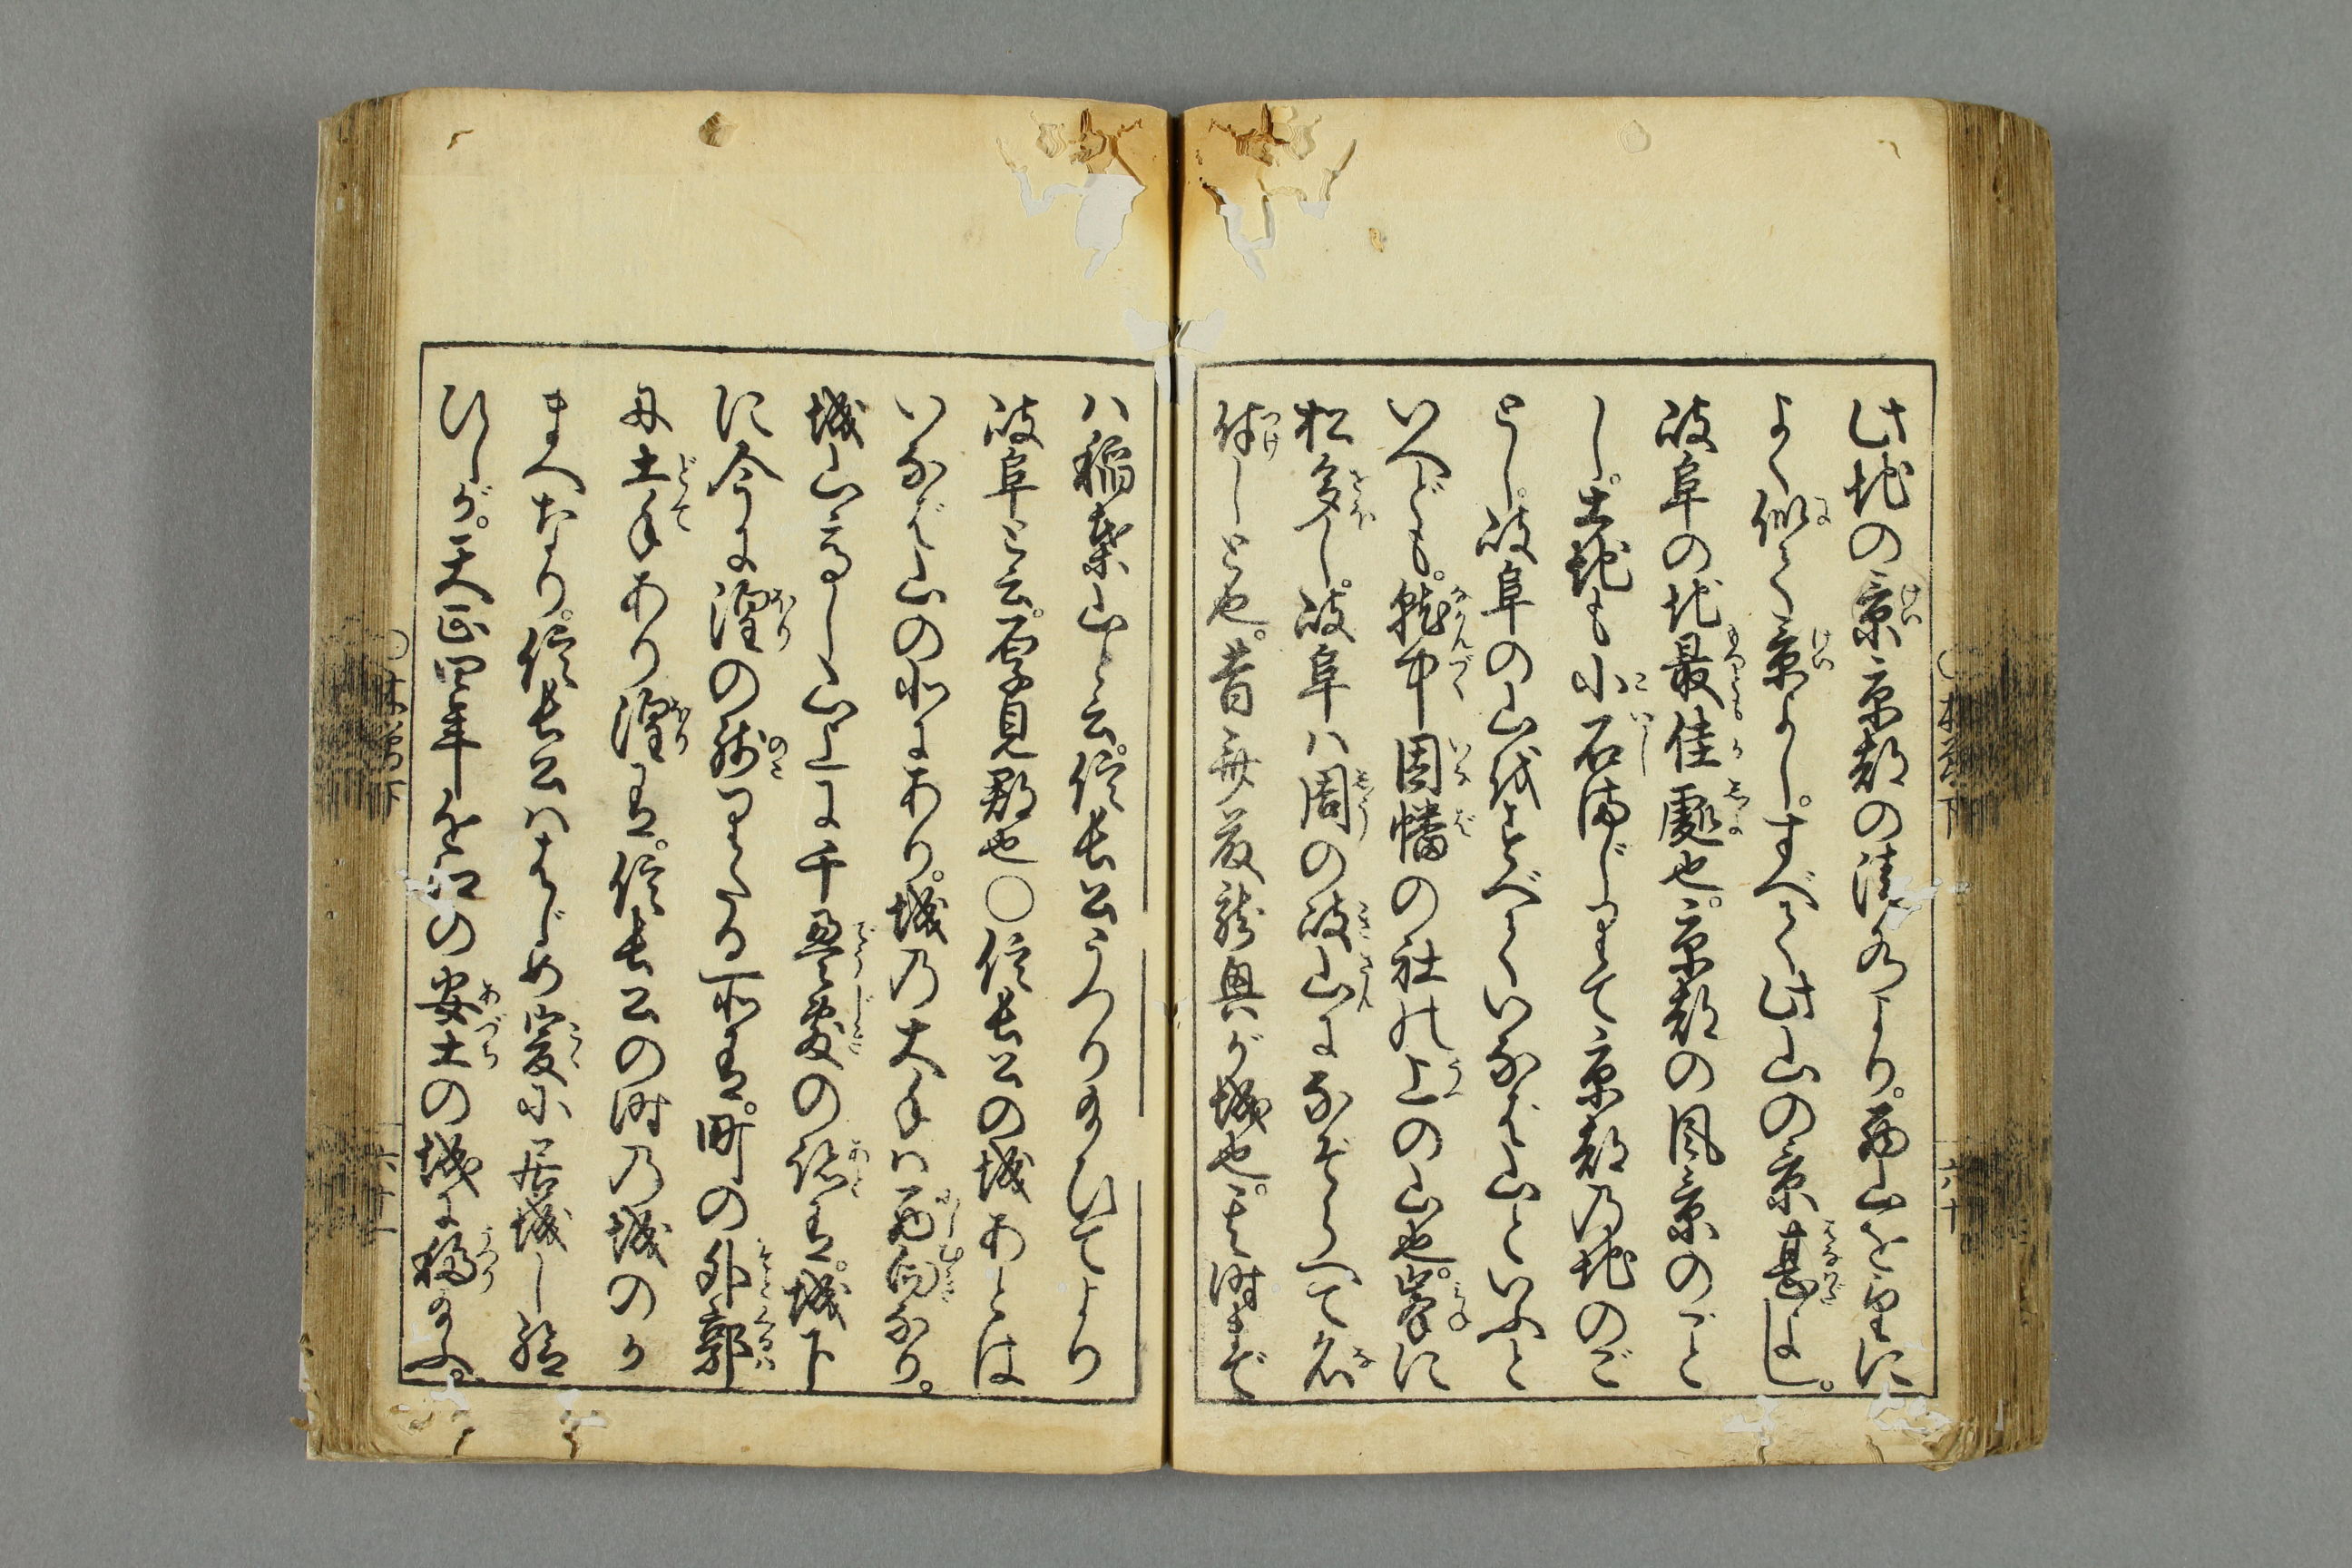 此地の景京都の清水より。西山を望に
よく似て景よし。すべて此山の京甚よし。
岐阜の地最佳處也。京都の風景のごと
し。土地も小石滿じりて京都乃地のご
とし。岐阜の山をすべていなば山といふと
いへども。就中因幡の社の上の山也。峯に
松多し。岐阜ハ周の岐山になぞらへて名
付しと也。昔斎藤龍興が城也。其時まで
ハ稲葉山と云。信長公うつり給ひてより
岐阜と云。厚見郡也〇信長公の城あとは
いなば山の北にあり。城乃大手ハ西向なり。
城山高し山上に千疊敷の跡有。城下
に今に湟の残りたる所有。町の外郭
に土手あり湟有。信長公の時乃城のか
まへなり。信長公ハはじめ爰に居城し給
ひしが。天正四年近江の安土の城に移給ふ。